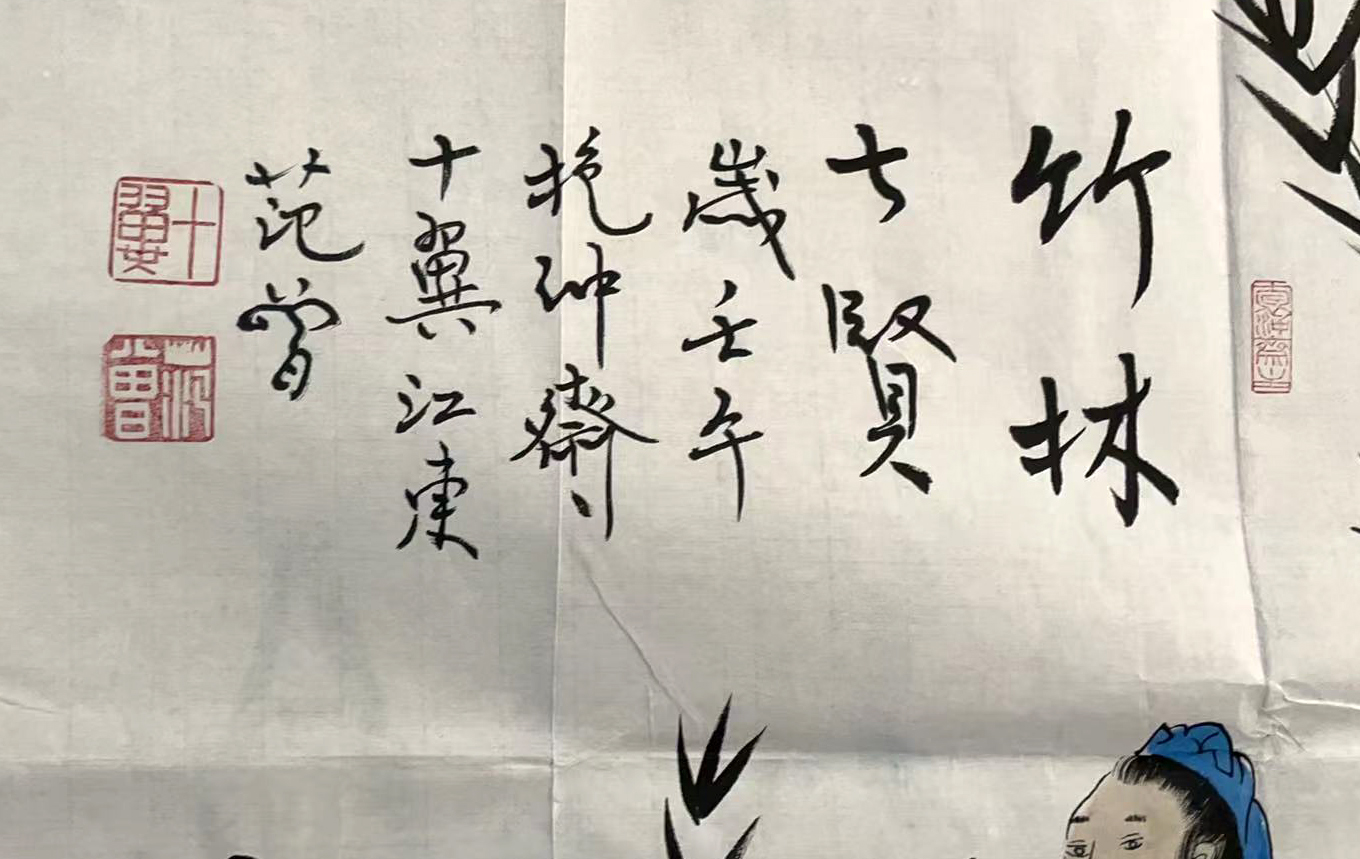 竹林
七賢
歲壬午
抱沖齋
十翼江東
范曾
十翼
范曾